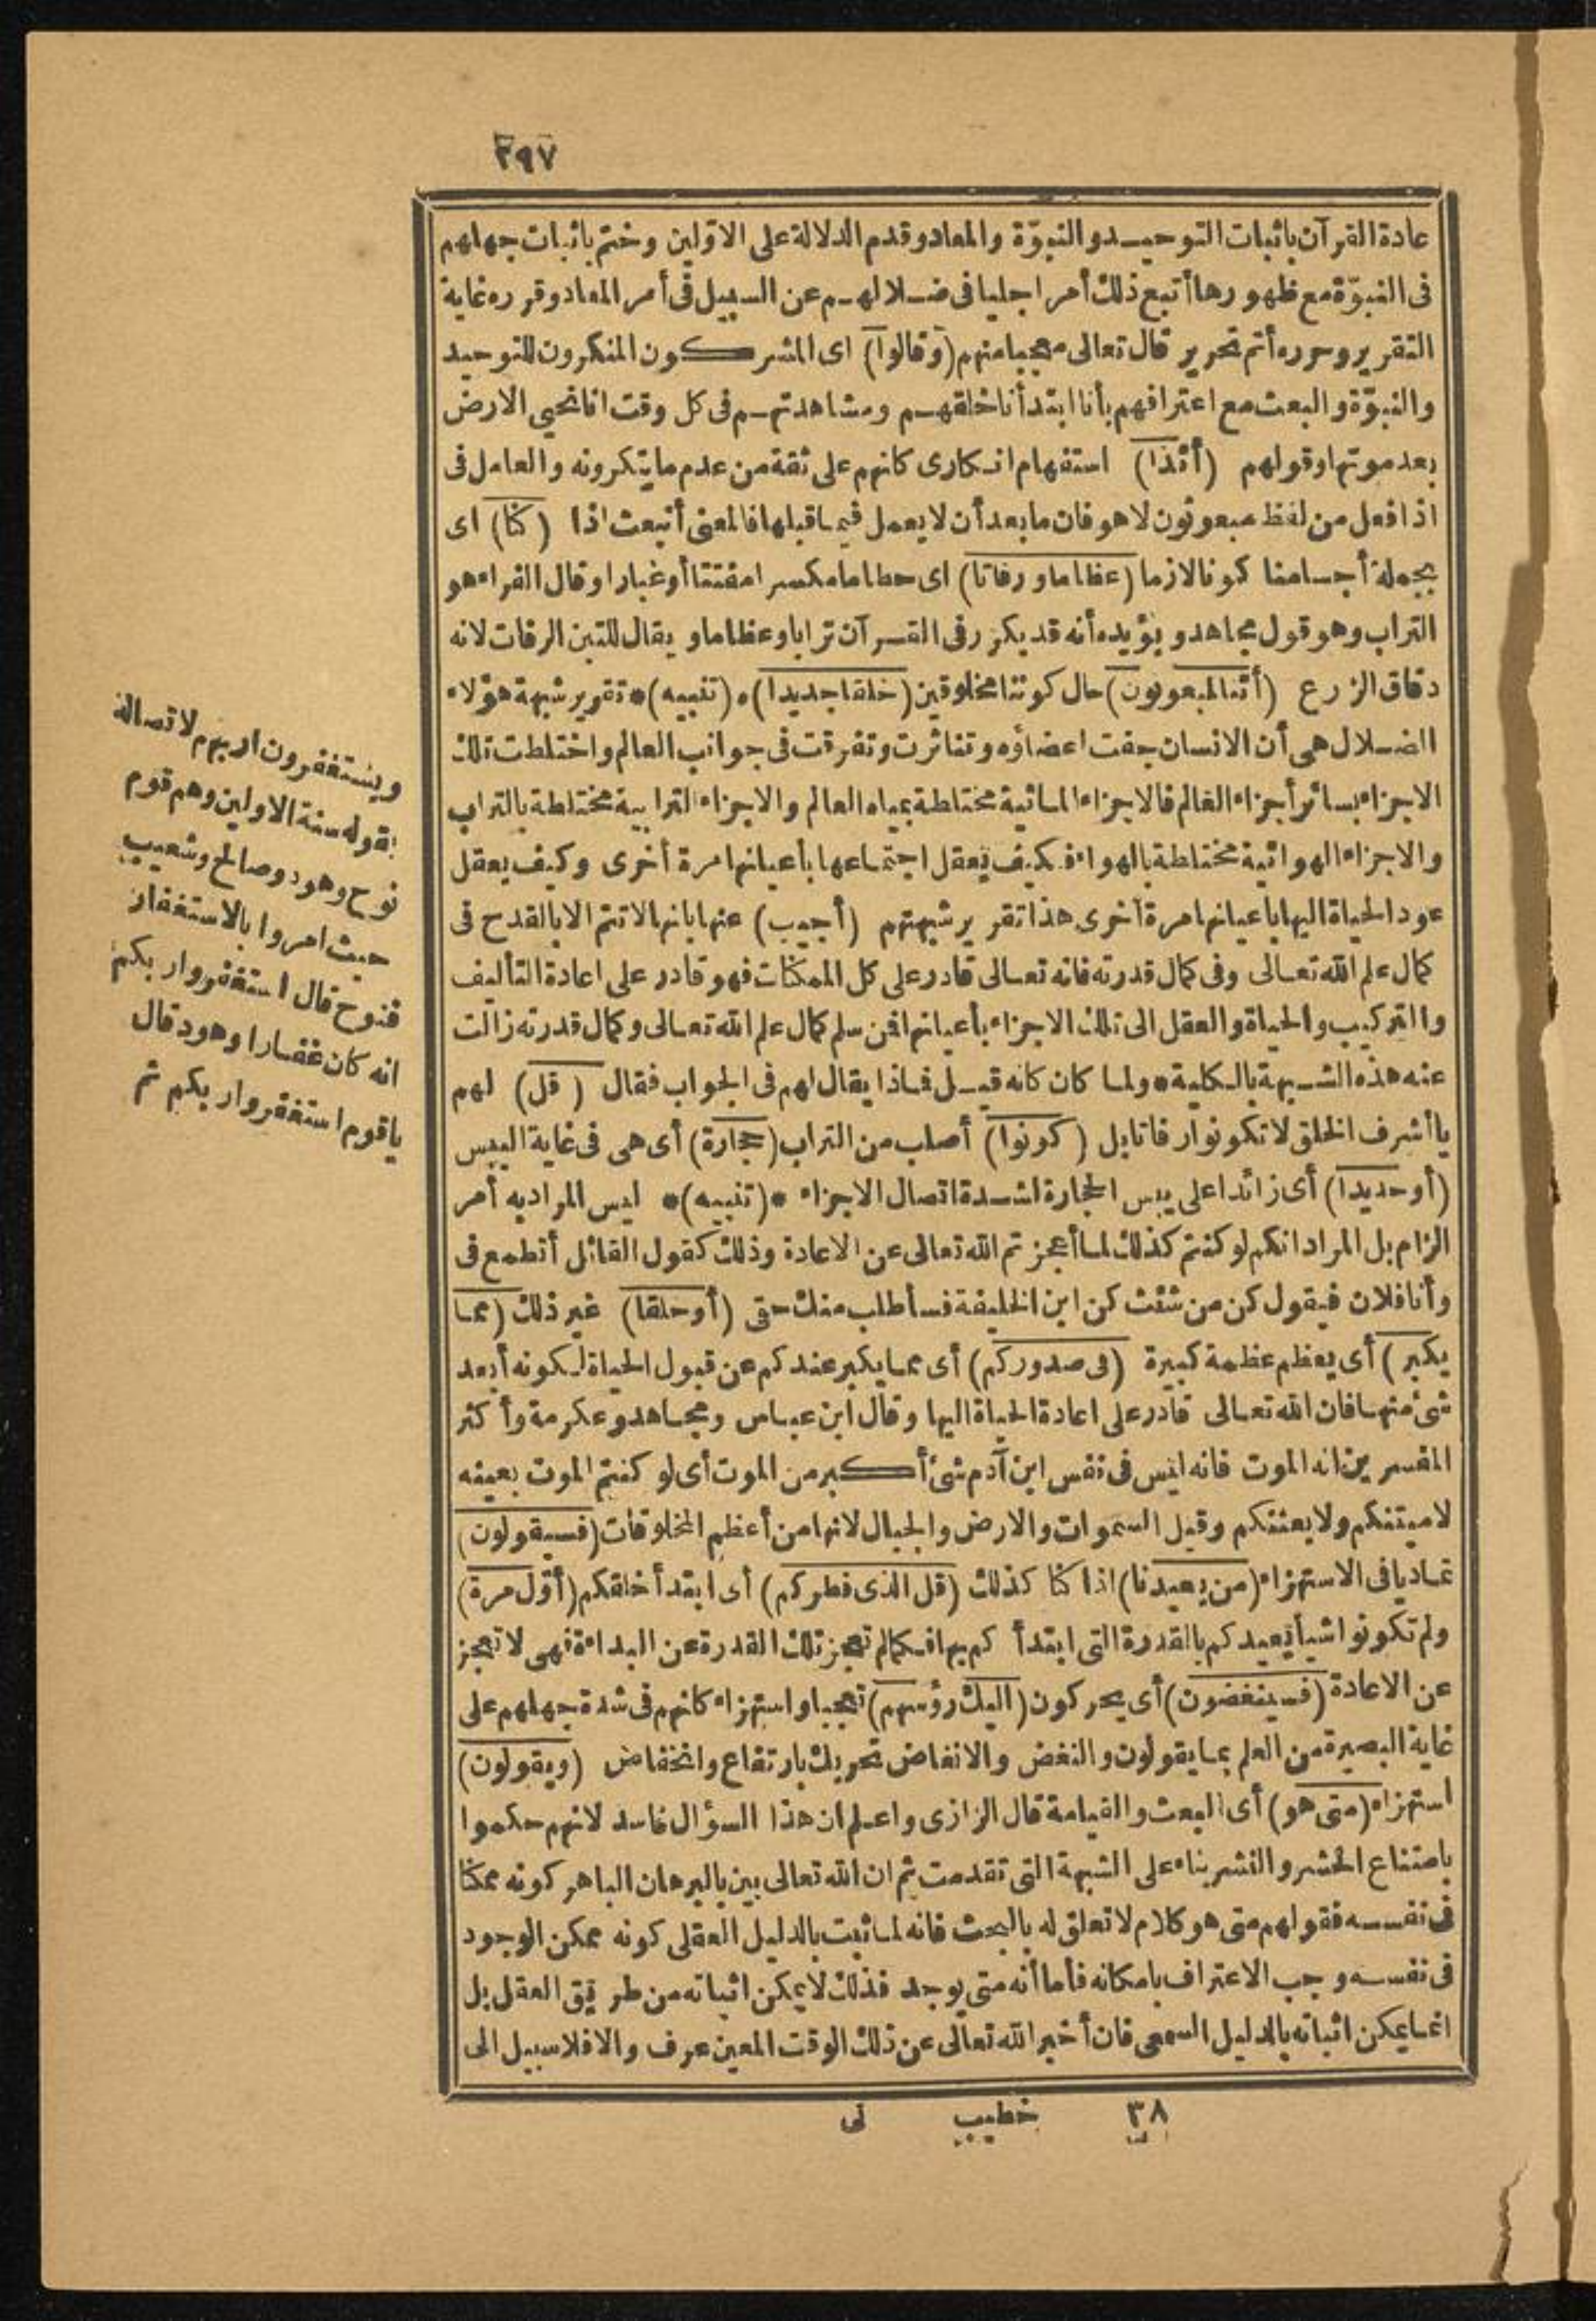 ٢٩٧
عادة القرآن باثبات التوحيد والنبوّة والمعاد وقدم الدلالة على الاوّلين وختم باثبات جهلهم
فى النبوّة مع ظهورها أتبع ذلك أمرا جليا فى ضلالهم عن السبيل فى أمر المعاد وقرره غاية
التقرير وحرره أتم تحرير قال تعالى معجبا منهم (وقالوا) اى المشركون المنكرون للتوحيد
والنبوّة والبعث مع اعترافهم بأنا ابتدأنا خلقهم ومشاهدتهم فى كل وقت انا نحيي الارض
بعد موتها وقولهم (أئذا) استفهام انكارى كانهم على ثقة من عدم ما ينكرونه والعامل فى
اذا فعل من لفظ مبعوثون لا هو فان ما بعد أن لا يعمل فيما قبلها فالمعنى أنبعث اذا (كنا) اى
بجملة أجسامنا كونا لازما (عظاما ورفاتا) اى حطاما مكسرا مفتتا أو غبارا وقال الفراء هو
التراب وهو قول مجاهد ويؤيده أنه قد يكرر فى القرآن ترابا وعظاما ويقال للتبن الرفات لانه
دقاق الزرع (أئنا لمبعوثون) حال كوننا مخلوقين (خلقا جديدا) * (تنبيه) * تقرير شبهة هؤلاء
الضلال هى أن الانسان جفت اعضاؤه وتناثرت وتفرقت فى جوانب العالم واختلطت تلك
الاجزاء بسائر أجزاء العالم فالاجزاء المائية مختلطة بمياه العالم والاجزاء الترابية مختلطة بالتراب
والاجزاء الهوائية مختلطة بالهواء فكيف يعقل اجتماعها بأعيانها مرة أخرى وكيف يعقل
عود الحياة اليها باعيانها مرة أخرى هذا تقرير شبهتهم (أجيب) عنها بانها لا تتم الا بالقدح فى
كمال علم الله تعالى وفى كمال قدرته فانه تعالى قادر على كل الممكنات فهو قادر على اعادة التأليف
والتركيب والحياة والعقل الى تلك الاجزاء بأعيانها فمن سلم كمال علم الله تعالى وكمال قدرته زالت
عنه هذه الشبهة بالكلية * ولما كان كانه قيل فماذا يقال لهم فى الجواب فقال (قل) لهم
يا أشرف الخلق لا تكونوا رفاتا بل (كونوا) أصلب من التراب (حجارة) أى هى فى غاية اليبس
(أو حديدا) أى زائدا على يبس الحجارة لشدة اتصال الاجزاء * (تنبيه) * ليس المراد به أمر
الزام بل المراد انكم لو كنتم كذلك لما أعجزتم الله تعالى عن الاعادة وذلك كقول القائل أتطمع فى
وأنا فلان فيقول كن من شئت كن ابن الخليفة فسأطلب منك حقى (أو خلقا) غير ذلك (مما
يكبر) أى يعظم عظمة كبيرة (فى صدوركم) أى مما يكبر عندكم عن قبول الحياة لكونه أبعد
شئ منها فان الله تعالى قادر على اعادة الحياة اليها وقال ابن عباس ومجاهد وعكرمة وأكثر
المفسرين انه الموت فانه ليس فى نفس ابن آدم شئ أكبر من الموت أى لو كنتم الموت بعينه
لأميتنكم ولابعثنكم وقيل السموات والارض والجبال لانها من أعظم المخلوقات (فسيقولون)
تماديا فى الاستهزاء (من يعيدنا) اذا كنا كذلك (قل الذى فطركم) أى ابتدأ خلقكم (أوّل مرة)
ولم تكونوا شيأ يعيدكم بالقدرة التى ابتدأكم بها فكما لم تعجز تلك القدرة عن البداءة فهى لا تعجز
عن الاعادة (فسينغضون) أى يحركون (اليك رؤسهم) تعجبا واستهزاء كانهم فى شدة جهلهم على
غاية البصيرة من العلم بما يقولون والنغض والانغاض تحريك بارتفاع وانخفاض (ويقولون)
استهزاء (متى هو) أى البعث والقيامة قال الرازى واعلم ان هذا السؤال فاسد لانهم حكموا
بامتناع الحشر والنشر بناء على الشبهة التى تقدمت ثم ان الله تعالى بين بالبرهان الباهر كونه ممكنا
فى نفسه فقولهم متى هو كلام لا تعلق له بالبحث فانه لما ثبت بالدليل العقلى كونه ممكن الوجود
فى نفسه وجب الاعتراف بامكانه فأما أنه متى يوجد فذلك لا يمكن اثباته من طريق العقل بل
انما يمكن اثباته بالدليل السمعى فان أخبر الله تعالى عن ذلك الوقت المعين عرف والا فلا سبيل الى
ويستغفرون اربهم لاتصاله
بقوله سنة الاولين وهم قوم
نوح وهود وصالح وشعيب
حيث امروا بالاستغفار
فنوح قال استغفروا ربكم
انه كان غفارا وهود قال
يا قوم استغفروا ربكم ثم
٣٨ خطيب نى